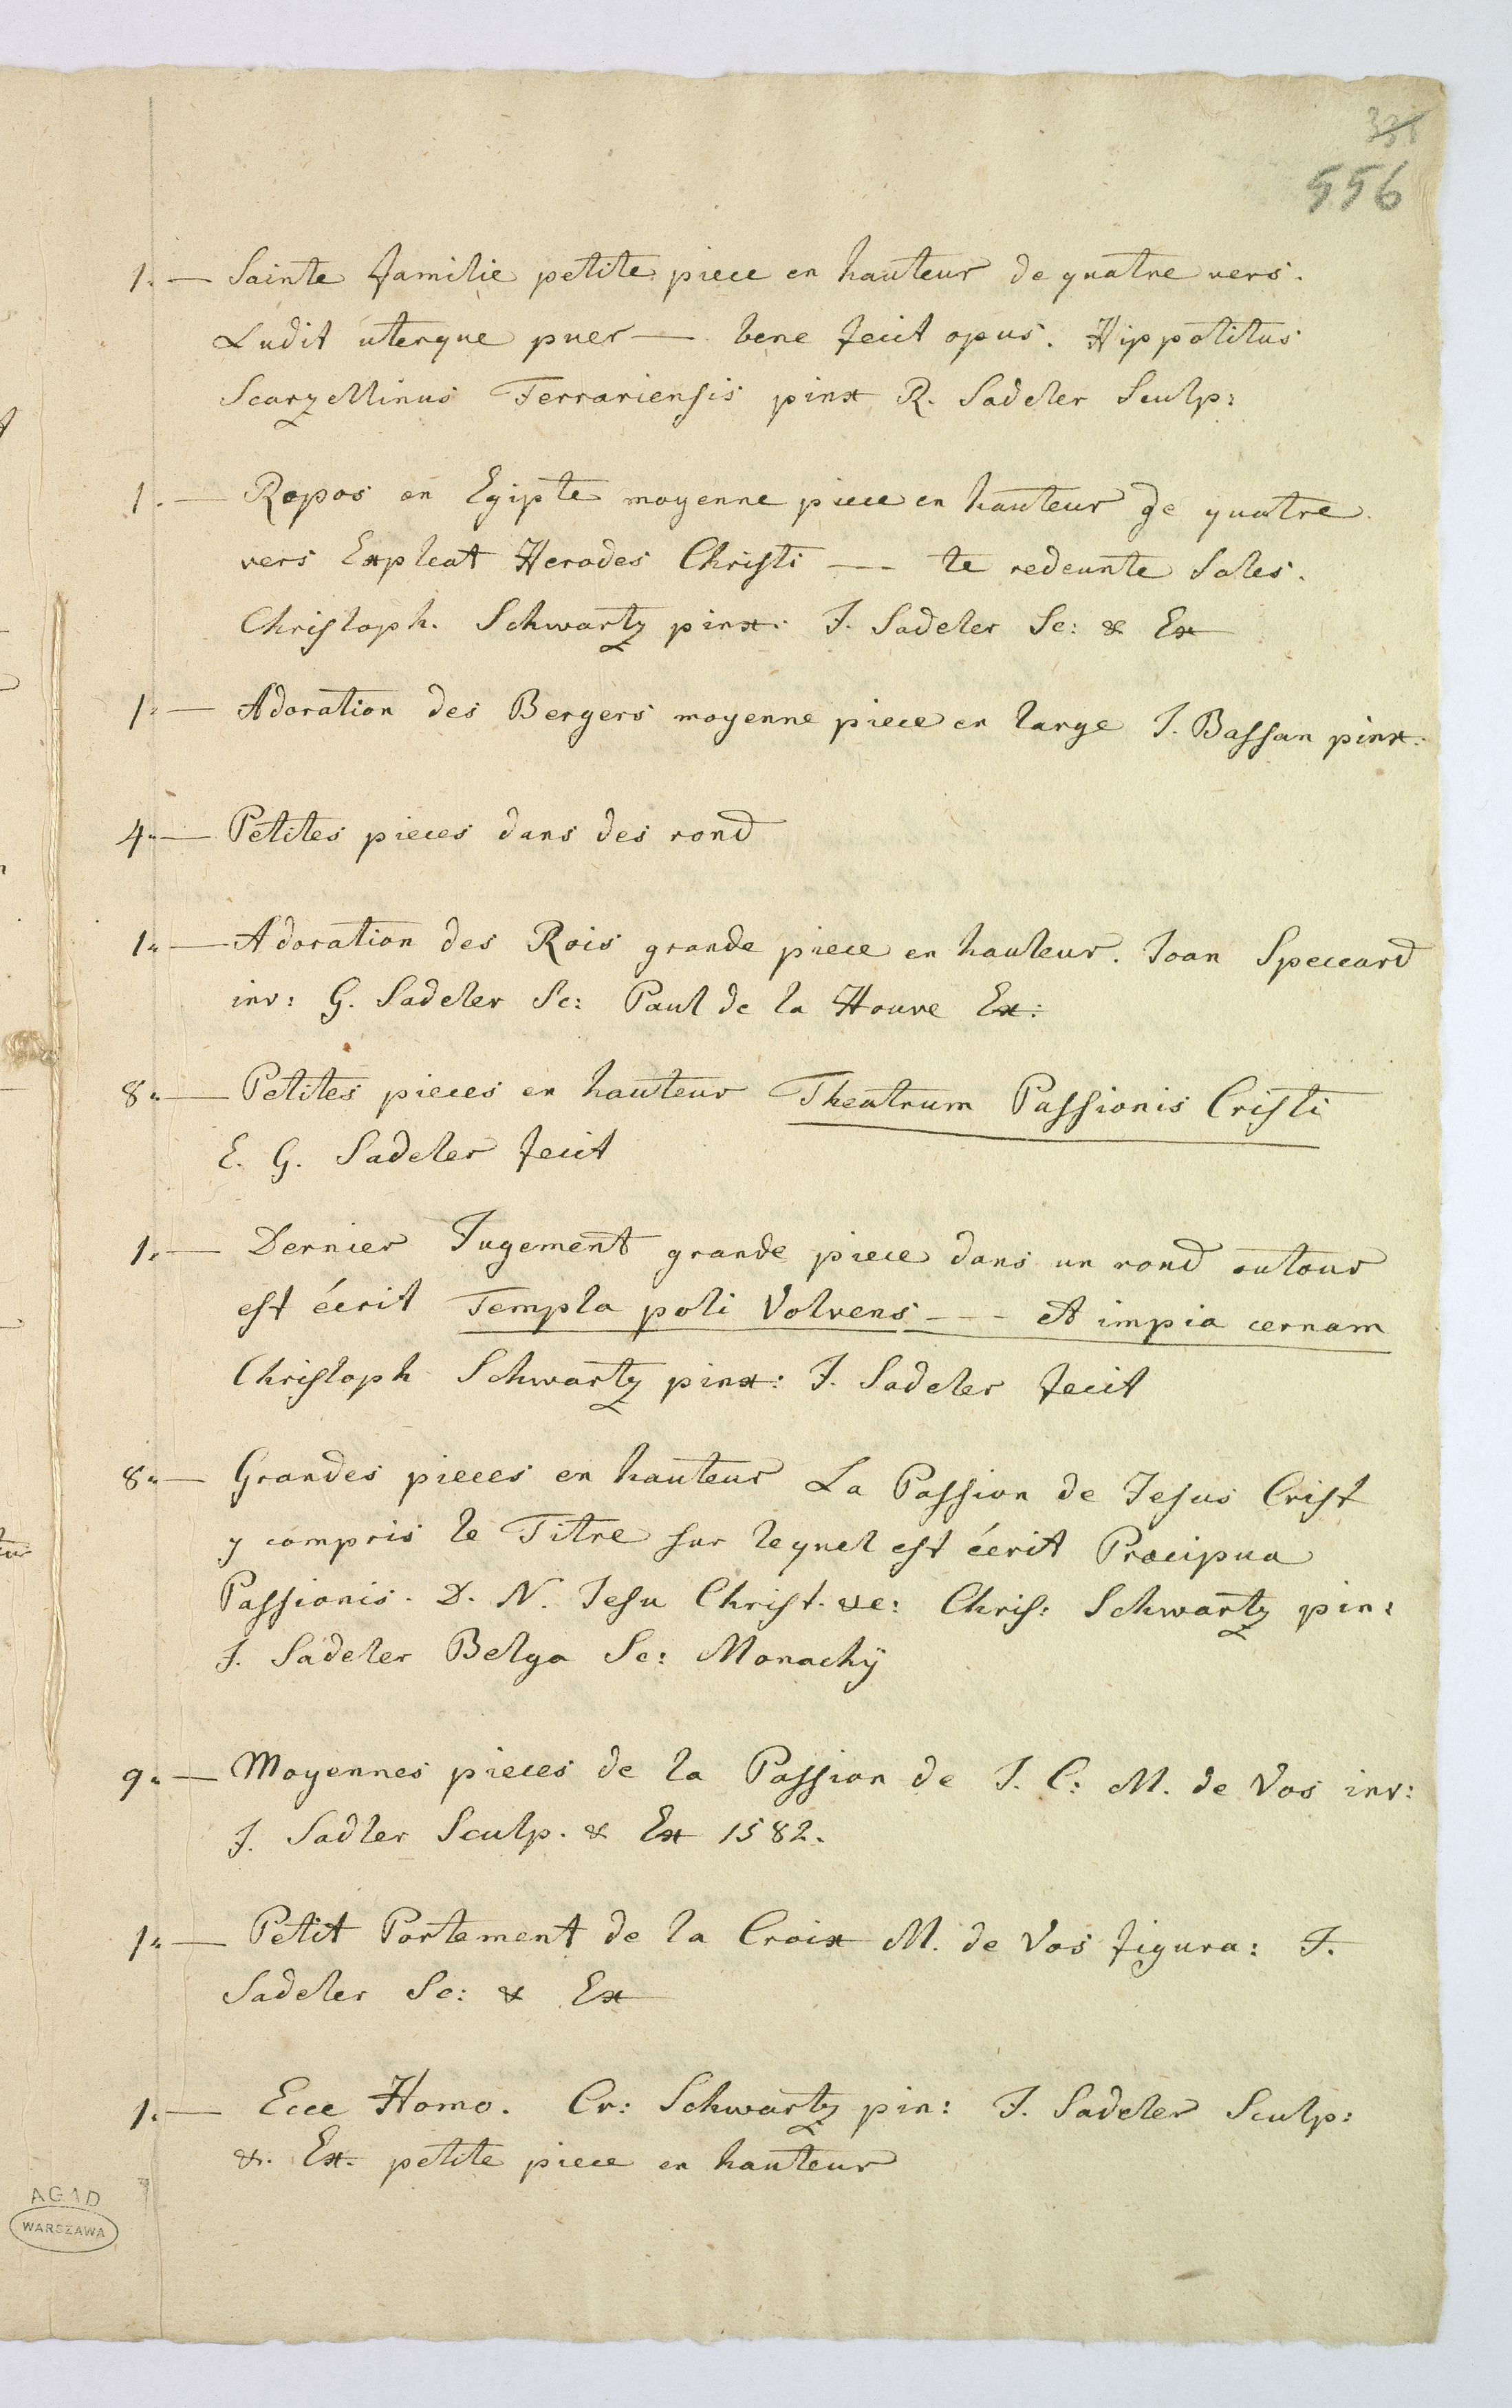 335
556
1. — Sainte familie petite piece en hauteur de quatre vers.
Ludit uterque puer — bene fecit opus. Hippolitus
Scarzellinus Ferrariensis pinx R. Sadeler Sculp:
1. — Repos en Egipte moyenne piece en hauteur de quatre
vers Expleat Herodes Christi — te redeunte Soles.
Christoph. Schwartz pinx. J. Sadeler Sc: & Ex
1. — Adoration des Bergers moyenne piece en large J. Bassan pinx.
4. — Petites pieces dans des rond
1. — Adoration des Rois grande piece en hauteur. Joan Speccard
inv: G. Sadeler Sc: Paul de la Houve Ex:
8. — Petites pieces en hauteur Theatrum Passionis Cristi
E. G. Sadeler fecit
1. — Dernier Jugement grande piece dans un rond autour
est écrit Templa poli Volvens --- et impia cernam
Christoph Schwartz pinx: J. Sadeler fecit
8. — Grandes pieces en hauteur La Passion de Jesus Crist
y compris le Titre sur lequel est écrit Procipua
Passionis. D. N. Jesu Christ. &c: Chris: Schwartz pin:
J. Sadeler Belga Sc: Monachÿ
9. — Moyennes pieces de la Passion de J. C: M. de Vos inv:
J. Sadler Sculp. & Ex 1582.
1. — Petit Portement de la Croix M. de Vos figura: J.
Sadeler Sc: & Ex
1. — Ecce Homo. Cr: Schwartz pin: J. Sadeler Sculp:
&. Ex. petite piece en hauteur
AGAD
WARSZAWA